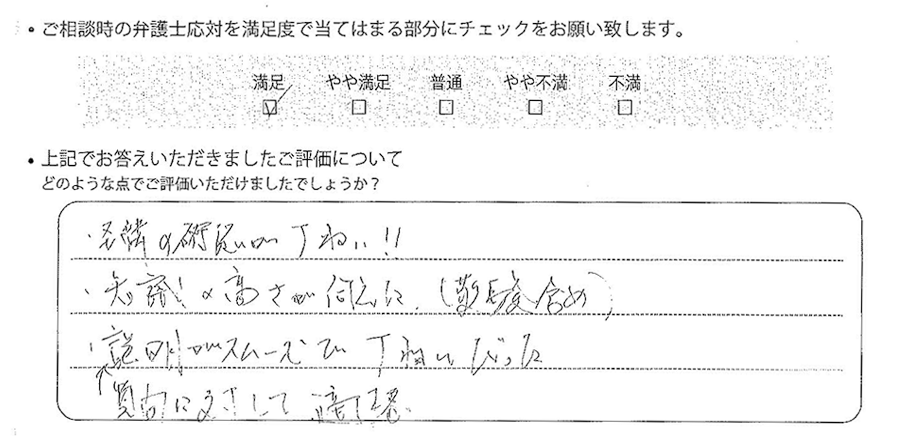 • ご相談時の弁護士応対を満足度で当てはまる部分にチェックをお願い致します。
満足 やや満足 普通 やや不満 不満
• 上記でお答えいただきましたご評価について
どのような点でご評価いただけましたでしょうか？
・ の確認が丁ねい!!
・知識の高さが伝った。(経験含め)
・説明がスムーズで丁ねいだった
↑質問に対して適確